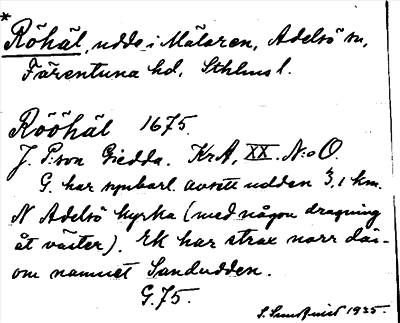 * Röhäl, udde i Mälaren, Adelsö sn,
Färentuna hd, Sthlms l.
Rööhäl 1675.
J. P:son Giedda. KrA, XX. N:o O.
G. har synbarl. avsett udden 3,1 km.
N Adelsö kyrka (med någon dragning
åt väster). EK har strax norr där-
om namnet Sandudden.
G. 75.
S. Sundquist 1935.